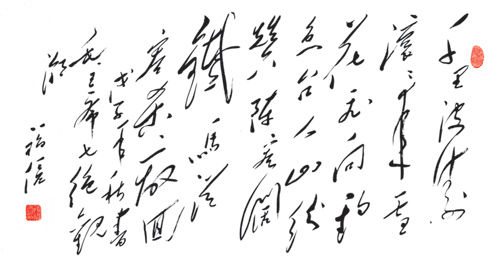 千里波涛
滚滚来雪
花飞向钓
鱼台人山纷
赞阵容阔
铁马从
容杀敌回
戊子年秋书
毛主席七绝观
潮